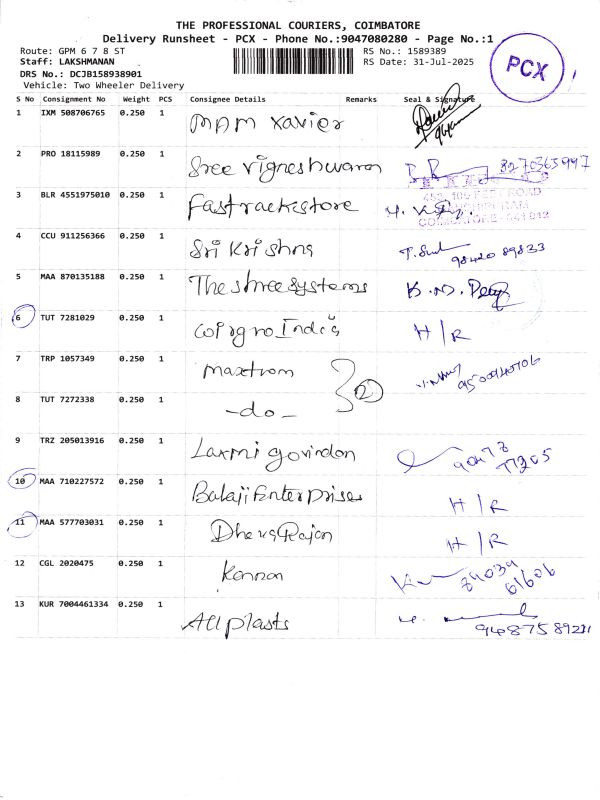 THE PROFESSIONAL COURIERS, COIMBATORE
Delivery Runsheet - PCX - Phone No.:9047080280 - Page No.:1
Route: GPM 6 7 8 ST
RS No.: 1589389
Staff: LAKSHMANAN
RS Date: 31-Jul-2025
DRS No.: DCJB158938901
Vehicle: Two Wheeler Delivery
PCX
S No Consignment No Weight PCS Consignee Details Remarks Seal & Signature
1 IXM 508706765 0.250 1 MPM Xavier
2 PRO 18115989 0.250 1 Sree Vigneshwaran 8270365997
3 BLR 4551975010 0.250 1 Fastrackstore
ROAD
COIMBATORE - 641 012
4 CCU 911256366 0.250 1 Sri Krishna 98420 89833
5 MAA 870135188 0.250 1 The shree systems
6 TUT 7281029 0.250 1 India H/R
7 TRP 1057349 0.250 1 maxtrom 2
8 TUT 7272338 0.250 1 -do-
9 TRZ 205013916 0.250 1 Laxmi govindan
10 MAA 710227572 0.250 1 Balaji Enterprises H/R
11 MAA 577703031 0.250 1 H/R
12 CGL 2020475 0.250 1 Kannan
13 KUR 7004461334 0.250 1 All plasts